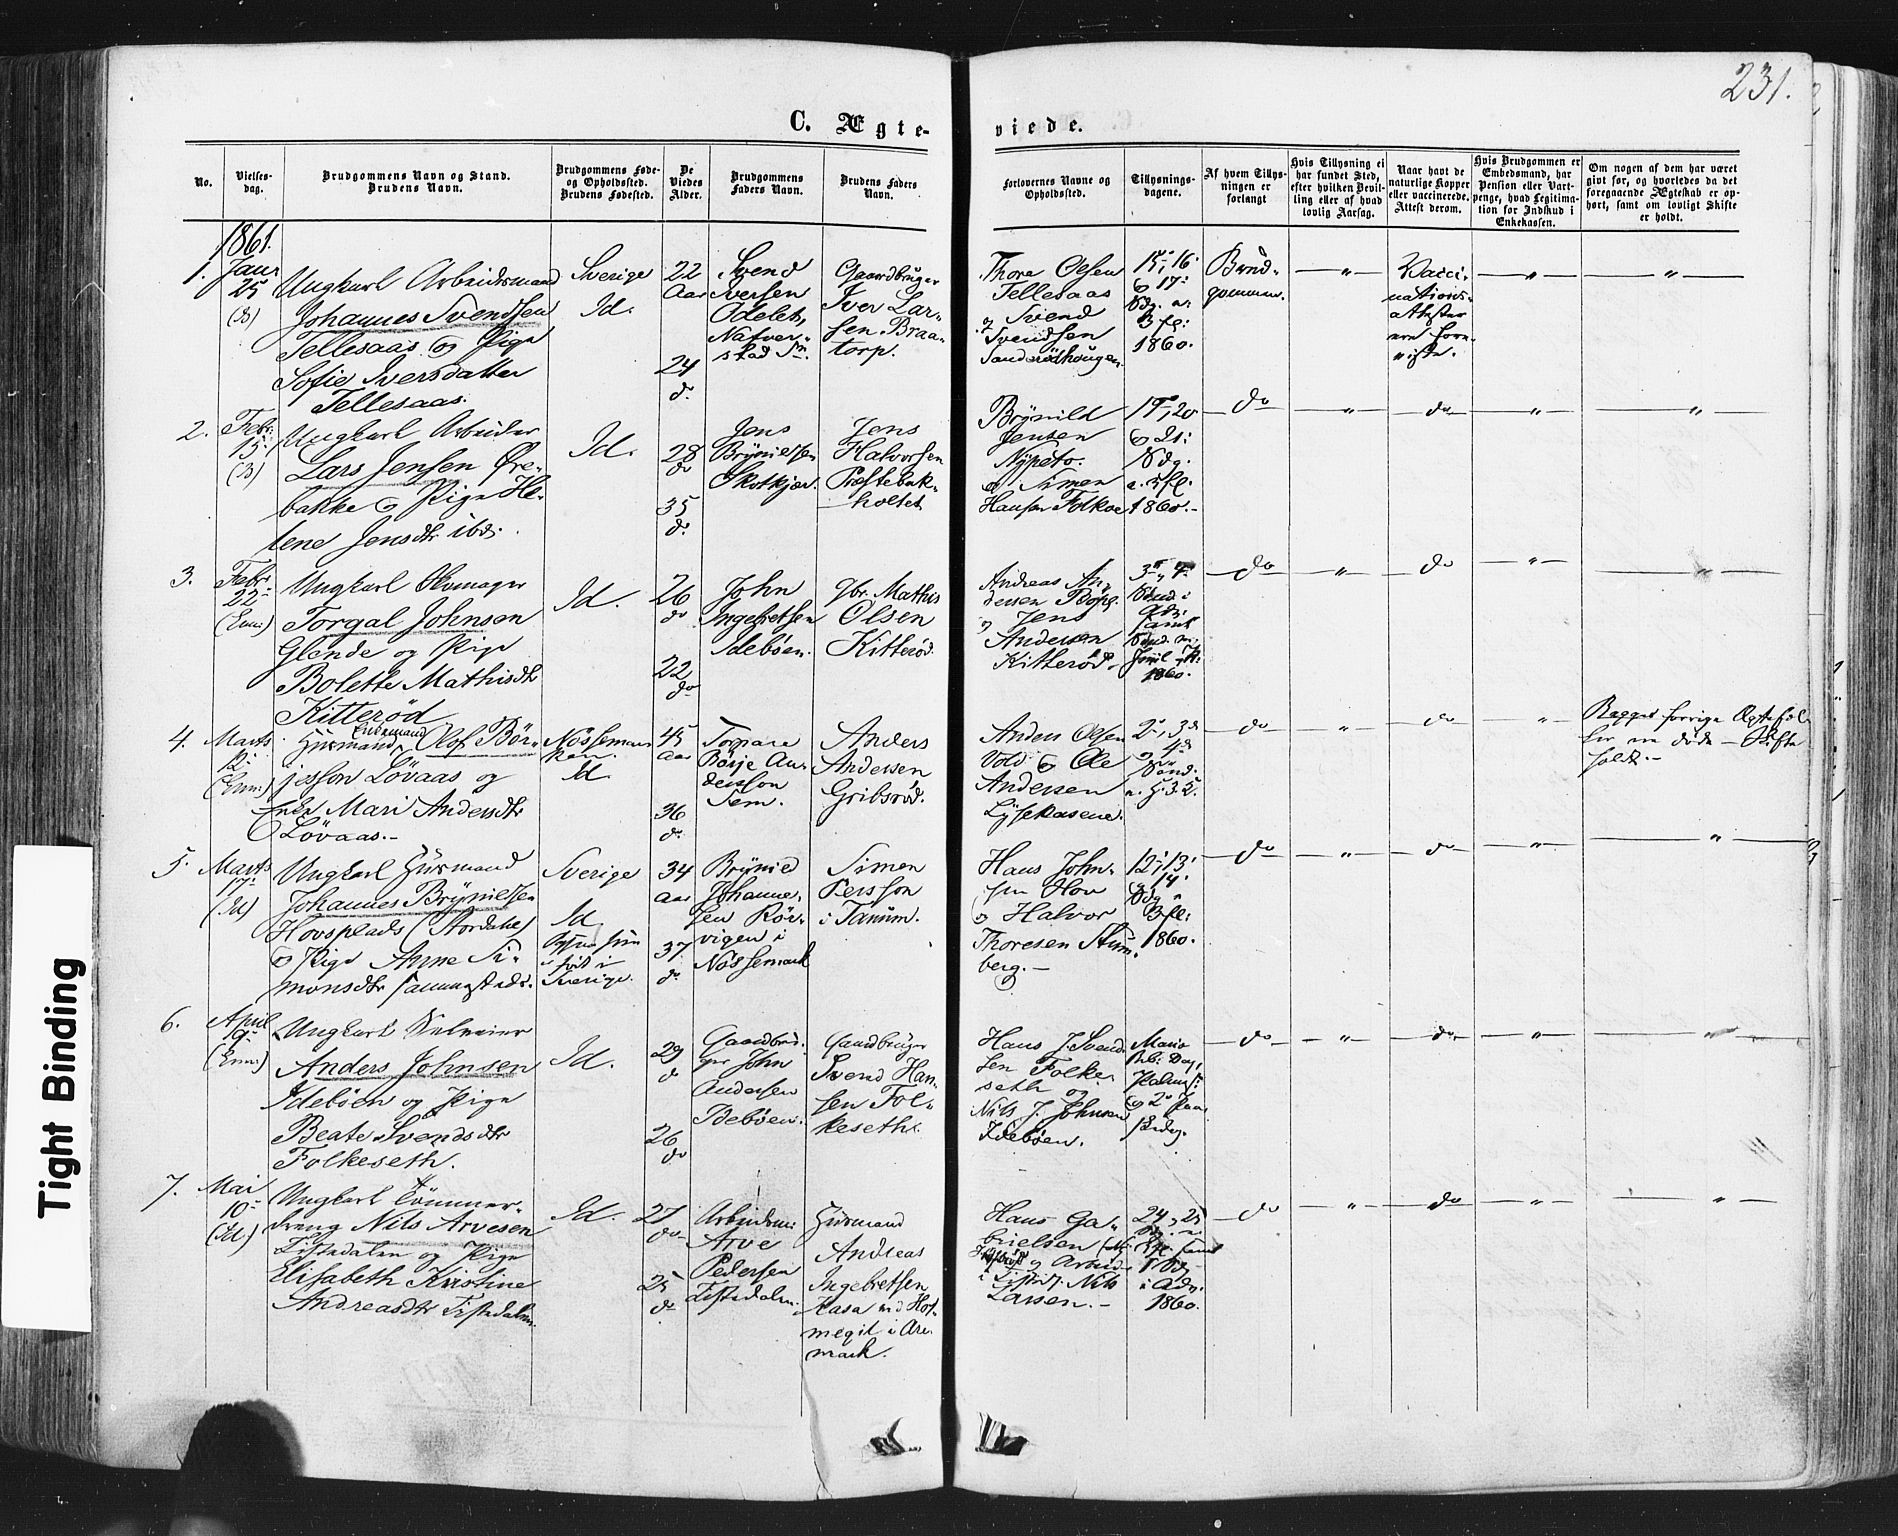 231.
C. Ægte-
viede.
No.
Vielses-
dag.
Brudgommens Navn og Stand.
Brudens Navn.
Brudgommens Føde-
og Opholdssted.
Brudens Fødested.
De
Viedes
Alder.
Brudgommens
Faders Navn.
Brudens Faders
Navn.
Forlovernes Navne og
Opholdssted.
Tillysnings-
dagene.
Af hvem Tillys-
ningen er
forlangt
Hvis Tillysning ei
har fundet Sted,
efter hvilken Bevil-
ling eller af hvad
lovlig Aarsag.
Naar havt de
naturlige Kopper
eller vaccinerede.
Attest derom.
Hvis Brudgommen er
Embedsmand, har
Pension eller Vart-
penge, hvad Legitima-
tion for Indskud i
Enkekassen.
Om nogen af dem har været
givt før, og hvorledes da det
foregaaende Ægteskab er op-
hørt, samt om lovligt Skifte
er holdt.
1861.
1.
Janr
25
(B)
Ungkarl Arbeidsmand
Johannes Svendsen
Tellesaas og Pige
Sofie Iversdatter
Tellesaas.
Sverige
Id.
22
Aar
24
do
Svend
Iversen
Gaardbruger
Iver Lar-
sen Braa-
torp.
Thore Olsen
Tellesaas
og Svend
Svendsen
Sanderødhougen.
15, 16
og 17
Sdg. a:
3 fl:
1860.
Brud-
gommen.
"
Vacci-
nations-
attester
ere fore-
viste.
"
"
2.
Febr.
15
(B)
Ungkarl Arbeider
Lars Jensen Øre-
bakke og Pige He-
lene Jensdtr ibd.
Id.
28
do
35
do
Jens
Brynildsen
Skotkjær.
Jens
Halvorsen
Præstebak-
holtet
Brynild
Jensen
Nypeto.
og Simen
Hansen Folkoe
19, 20
og 21
Sdg.
1860.
do
"
do
"
"
3.
Febr.
22
(Enn.)
Ungkarl Skomager
Torgal Johnsen
Glende og Pige
Bolette Mathisdtr
Kitterød
Id.
26
do
22
do
John
Ingebretsen
Idebøen.
Gbr. Mathis
Olsen
Kitterød.
Andreas An-
dersen
og Jens
Andersen
Kitterød.
3, 4
Adv.
samt
1860.
do
"
do
"
"
4.
Marts
12
(Enn.)
Huusmand Enkemand Olof Bör-
jesson Løvaas og
Enke Mari Andersdtr
Løvaas.
Nössemar-
ken.
Id.
45
aar
36
do
Torpare
Börje An-
dersson
Sem.
Anders
Andersen
Gribsrød.
Anders Olsen
Vold og Ole
Andersen
Lysekasene.
2, 3
og 4
do
"
do
"
Begges forrige Ægtefæl-
ler ere døde - Skifte
holdt.
5.
Marts
17
(Id)
Ungkarl Huusmand
Johannes Brynildsen
Hovsplads (Stordahl)
og Pige Anne Si-
monsdtr sammesteds.
Sverige
Id
født i
Sverige.
34
aar
37
do
Brynild
Johanne-
sen Rör-
vigen i
Nössemark
Simen
Persson
i Tanum.
Hans John-
sen Hov
og Halvor
Thoresen Stum-
berg.
12, 13
og 14
Sdg a
3 fl:
1860.
do
"
do
"
"
6.
April
9
(Enn.)
Ungkarl Selveier
Anders Johnsen
Idebøen og Pige
Beate Svendsdtr
Folkeseth.
Id.
29
do
26
do
Gaardbru-
ger John
Andersen
Idebøen.
Gaardbruger
Svend Han-
sen Fol-
keseth.
Hans J. Svend-
sen Folke-
seth og
Nils J. Johnsen
Idebøen.
Maria
Beb. Dag,
Palmes.
og 2 Paa-
skedag.
do
"
do
"
"
7.
Mai
10
(Id)
Ungkarl Tømmer-
dreng Nils Arvesen
Tistedalen og Pige
Elisabeth Kristine
Andreasdtr Tistedalen.
Id.
27
do
25
do
Arbeidsm.
Arve
Pedersen
Tistedalen.
Huusmand
Andreas
Ingebretsen
Kasa ved Hof-
megil i Are-
mark.
Hans Ga-
brielsen
og Arbeid.
i Tisted. Nils
Larsen.
24, 25
samt
1 Sdg
i Adv.
1860.
do
"
do
"
"
Tight Binding